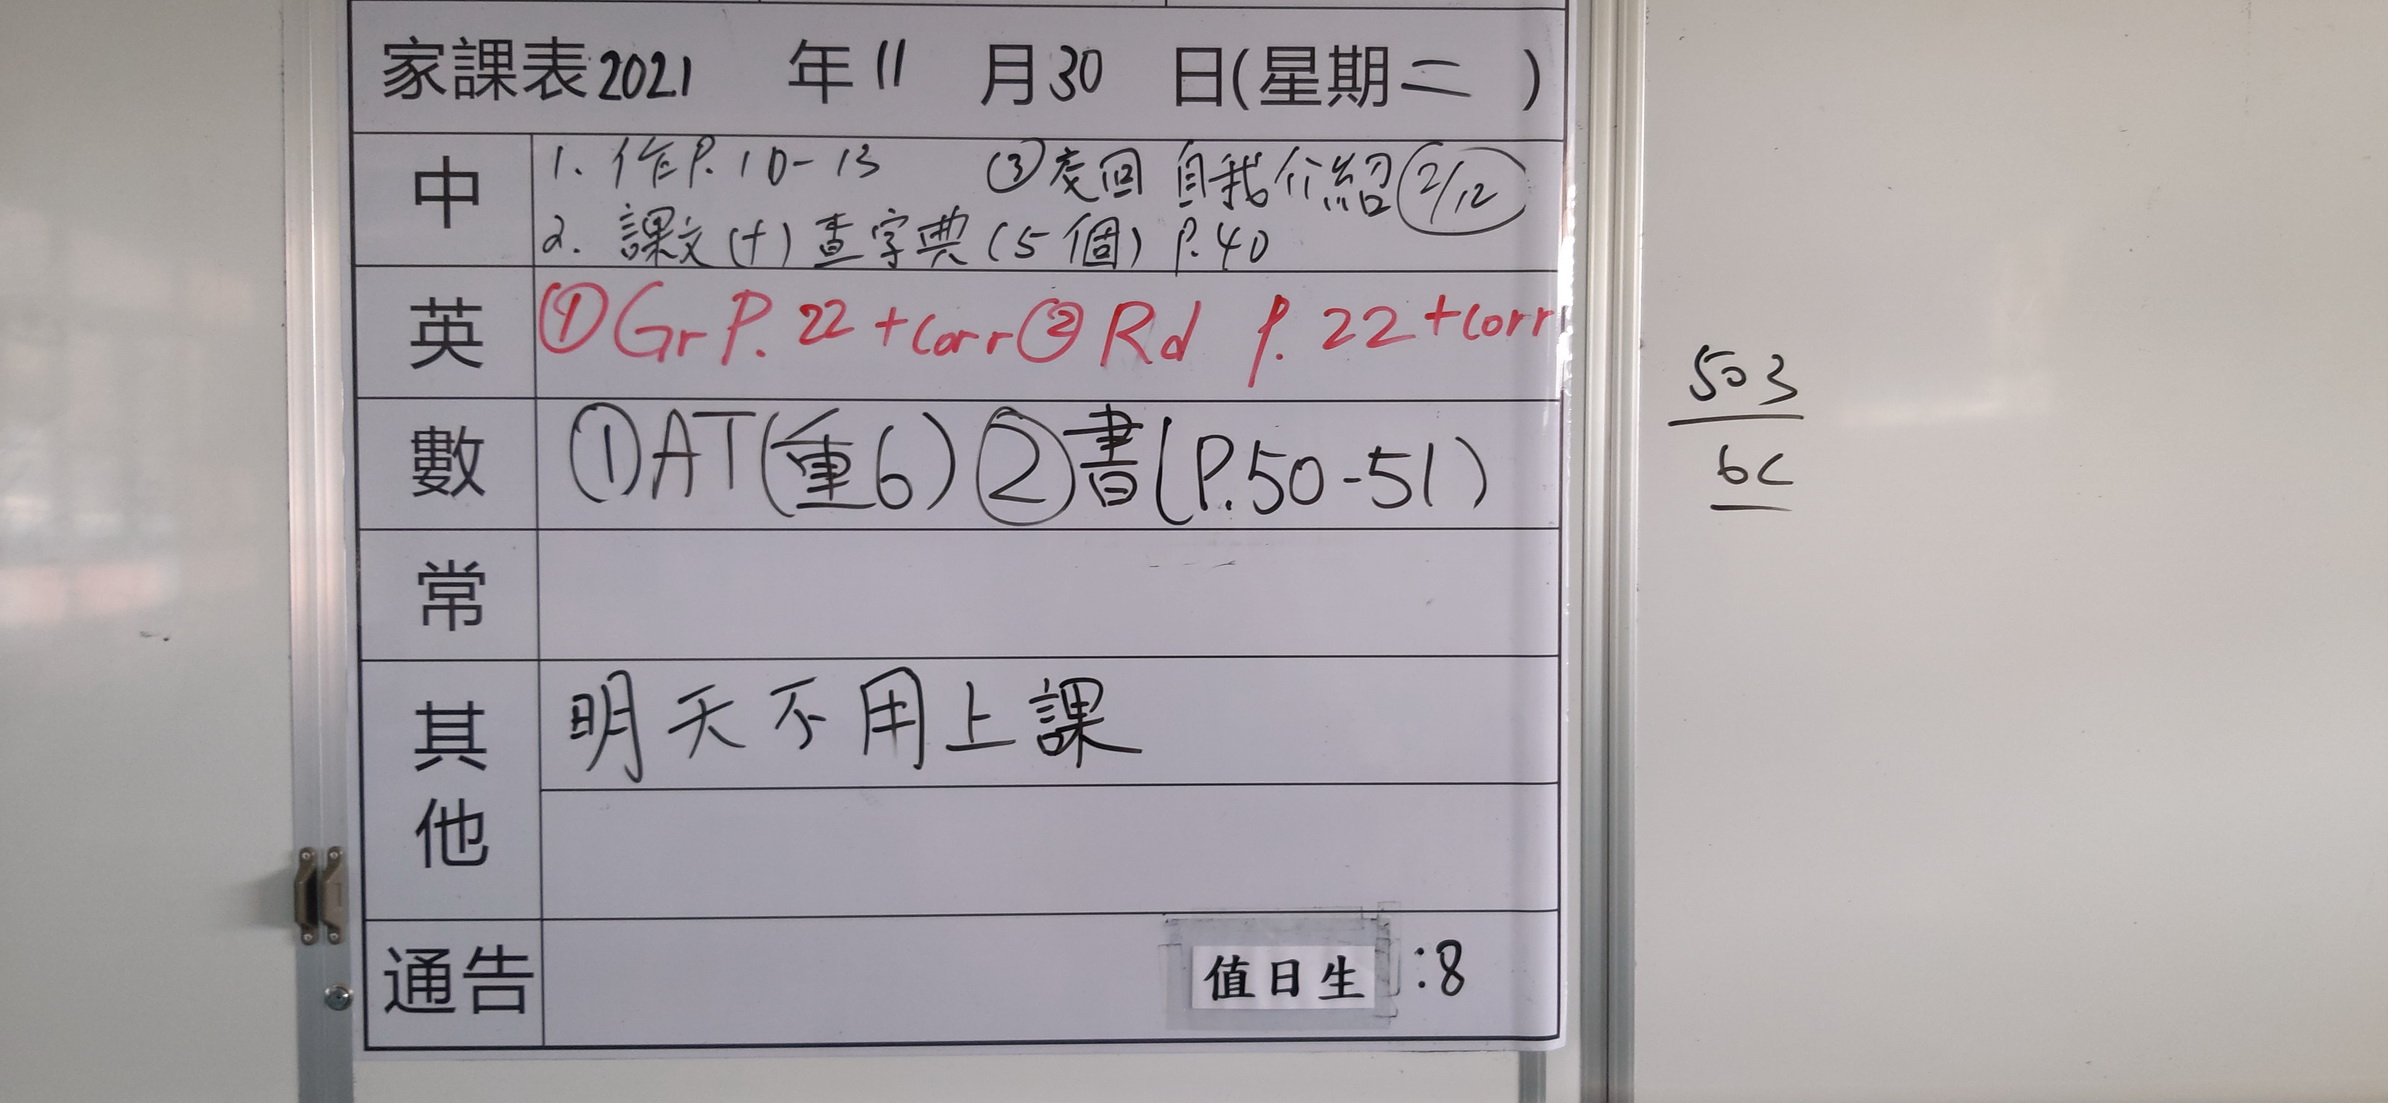 家課表2021 年11 月30 日(星期二 )
中
1. 作P.10-13 ③交回 自我介紹 2/12
2. 課文(十)查字典(5個) P.40
英
①Gr P. 22 +corr ② Rd P. 22 +corr
數
①AT(重6) ②書(P.50-51)
常
其他
明天不用上課
通告
值日生 :8
503
6C